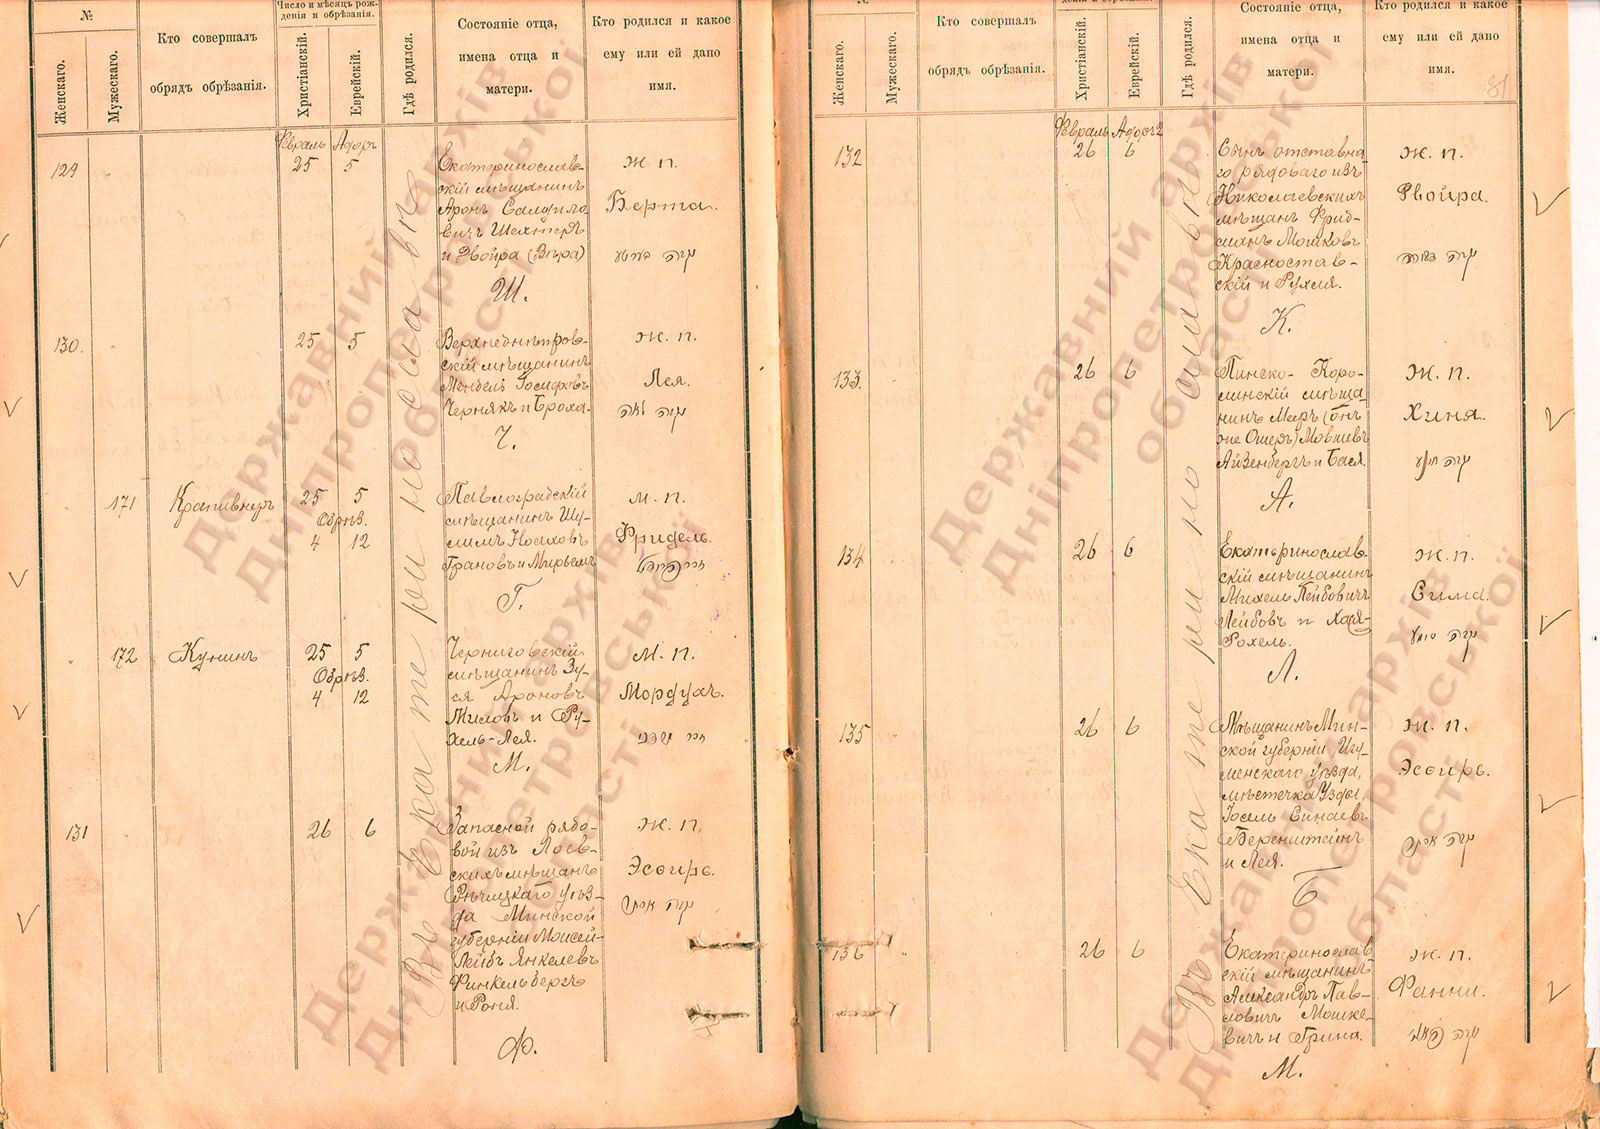 №
Женскаго.
Мужескаго.
Кто совершалъ
обрядъ обрѣзанія.
Число и мѣсяцъ рож-
денія и обрѣзанія.
Христіанскій.
Еврейскій.
Гдѣ родился.
Состояніе отца,
имена отца и
матери.
Кто родился и какое
ему или ей дано
имя.
Февраль Адаръ
129
25 5
Екатеринослав-
скій мѣщанинъ
Аронъ Самуило-
вичъ Шехтеръ
и Двойра (Вѣра)
Ш.
Ж. п.
Берта.
130.
25 5
Верхнеднѣпров-
скій мѣщанинъ
Мендель Іосифовъ
Чернякъ и Броха.
Ч.
Ж. п.
Лея.
171
Крапивнеръ
25 5
Обрѣз.
4 12
Павлоградскій
мѣщанинъ Шу-
лимъ Носиховъ
Грановъ и Мирьемъ
Г.
М. п.
Фридель.
172
Кунинъ
25 5
Обрѣз.
4 12
Черниговскій
мѣщанинъ Зу-
ся Ароновъ
Миловъ и Ру-
хель-Лея.
М.
М. п.
Мордухъ.
131
26 6
Запасной рядо-
вой изъ Лоев-
скихъ мѣщанъ
Рѣчицкаго уѣз-
да Минской
губерніи Моисей-
Лейбъ Янкелевъ
Финкельбергъ
и Роня.
Ф.
Ж. п.
Эсѳирь.
Въ Екатеринославѣ
№
Женскаго.
Мужескаго.
Кто совершалъ
обрядъ обрѣзанія.
денія и обрѣзанія.
Христіанскій.
Еврейскій.
Гдѣ родился.
Состояніе отца,
имена отца и
матери.
Кто родился и какое
ему или ей дано
имя.
81
Февраль Адаръ 2
132
26 6
Сынъ отставна-
го рядоваго изъ
Николаевскихъ
мѣщанъ Фрид-
манъ Мошковъ
Красностав-
скій и Рухля.
К.
Ж. п.
Двойра.
133
26 6
Пинско-Каро-
линскій мѣща-
нинъ Мееръ (онъ
же Ошеръ) Мовшевъ
Айзенбергъ и Бася.
А.
Ж. п.
Хиня.
134
26 6
Екатеринослав-
скій мѣщанинъ
Михель Лейбовичъ
Лейбовъ и Хая-
Рохель.
Л.
Ж. п.
Сима.
135
26 6
Мѣщанинъ Мин-
ской губерніи, Игу-
менскаго уѣзда,
мѣстечка Узды,
Іосель Синаевъ
Беренштейнъ
и Лея.
Б
Ж. п.
Эсѳирь.
136
26 6
Екатеринослав
скій мѣщанинъ
Александръ Пав-
ловичъ Мошке-
вичъ и Грина.
М.
Ж. п.
Фанни.
Въ Екатеринославѣ
Державний архів
Дніпропетровської
області
Державний архів
Дніпропетровської
області
Державний архів
Дніпропетровської
області
Державний архів
Дніпропетровської
області